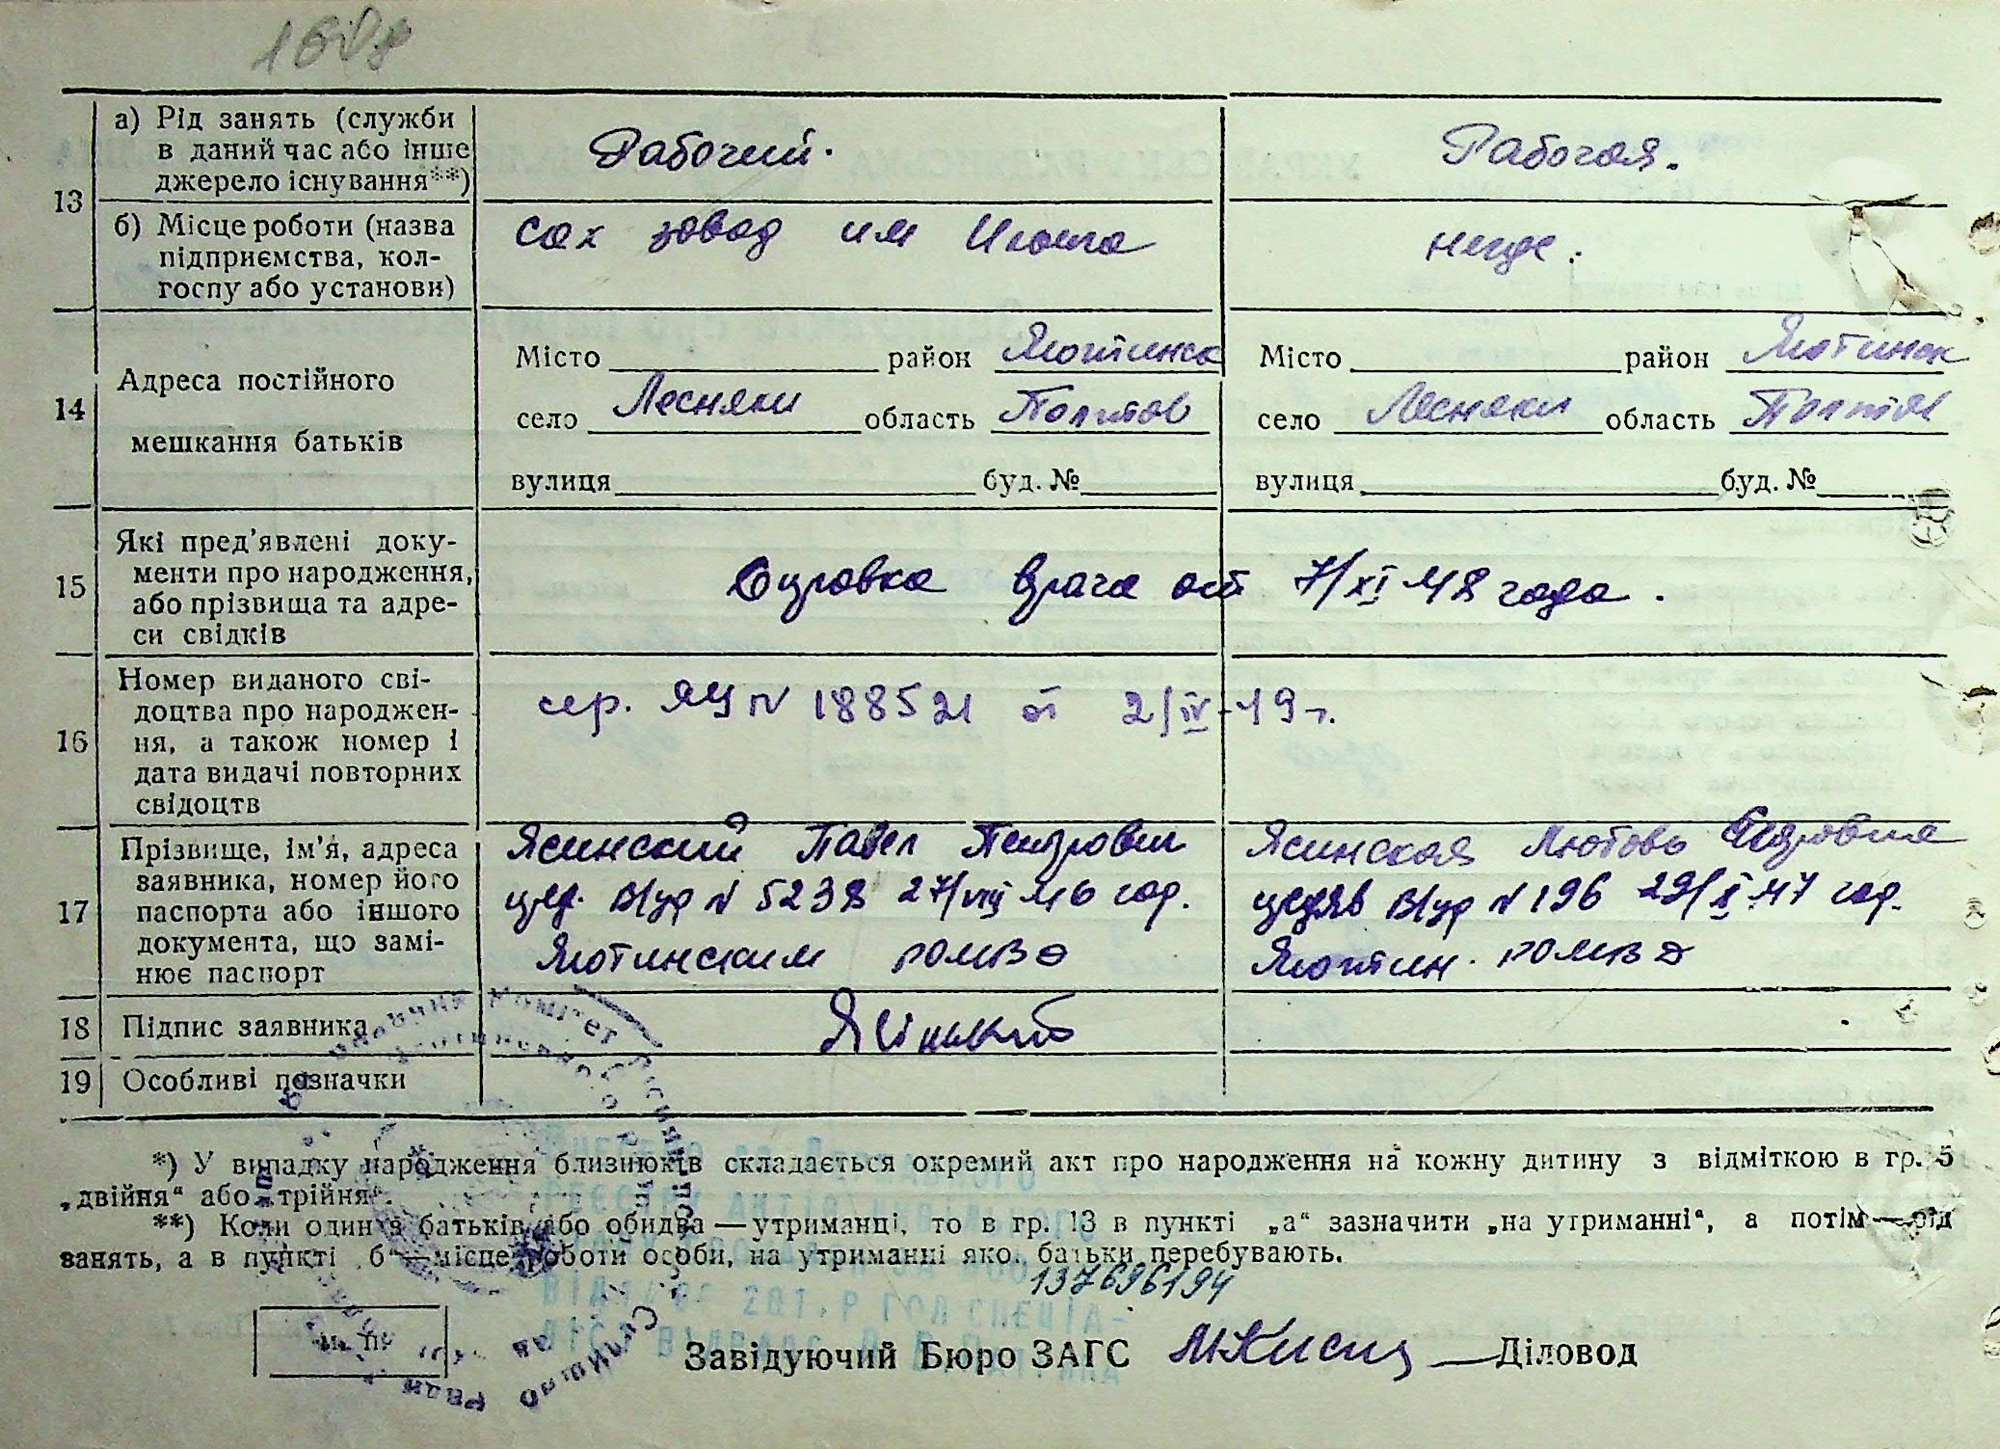 13
а) Рід занять (служби
в даний час або інше
джерело існування**)
Рабочий.
Рабочая.
б) Місце роботи (назва
підприємства, кол-
госпу або установи)
Сах завод им Ильича
негде.
14
Адреса постійного
мешкання батьків
Місто район Яготинск
село Лесняки область Полтав
вулиця буд. №
Місто район Яготинск
село Лесняки область Полтав
вулиця буд. №
15
Які пред’явлені доку-
менти про народження,
або прізвища та адре-
си свідків
Справка врача от 7/XI 48 года.
16
Номер виданого сві-
доцтва про народжен-
ня, а також номер і
дата видачі повторних
свідоцтв
сер. ЯЦ N 188521 от 2/IV-49 г.
17
Прізвище, ім’я, адреса
заявника, номер його
паспорта або іншого
документа, що замі-
нює паспорт
Ясинский Павел Петрович
N 5238 27/VIII 46 год.
Яготинским РОМВД
Ясинская Любовь Петровна
N 196 29/X 47 год.
Яготин. РОМВД
18
Підпис заявника
19
Особливі позначки
*) У випадку народження близнюків складається окремий акт про народження на кожну дитину з відміткою в гр. 5
„двійня“ або „трійня“.
**) Коли один з батьків або обидва — утриманці, то в гр. 13 в пункті „а“ зазначити „на утриманні“, а потім — рід
занять, а в пункті „б“ — місце роботи особи, на утриманні яко. батьки перебувають.
137696194
М. П.
Завідуючий Бюро ЗАГС
Діловод